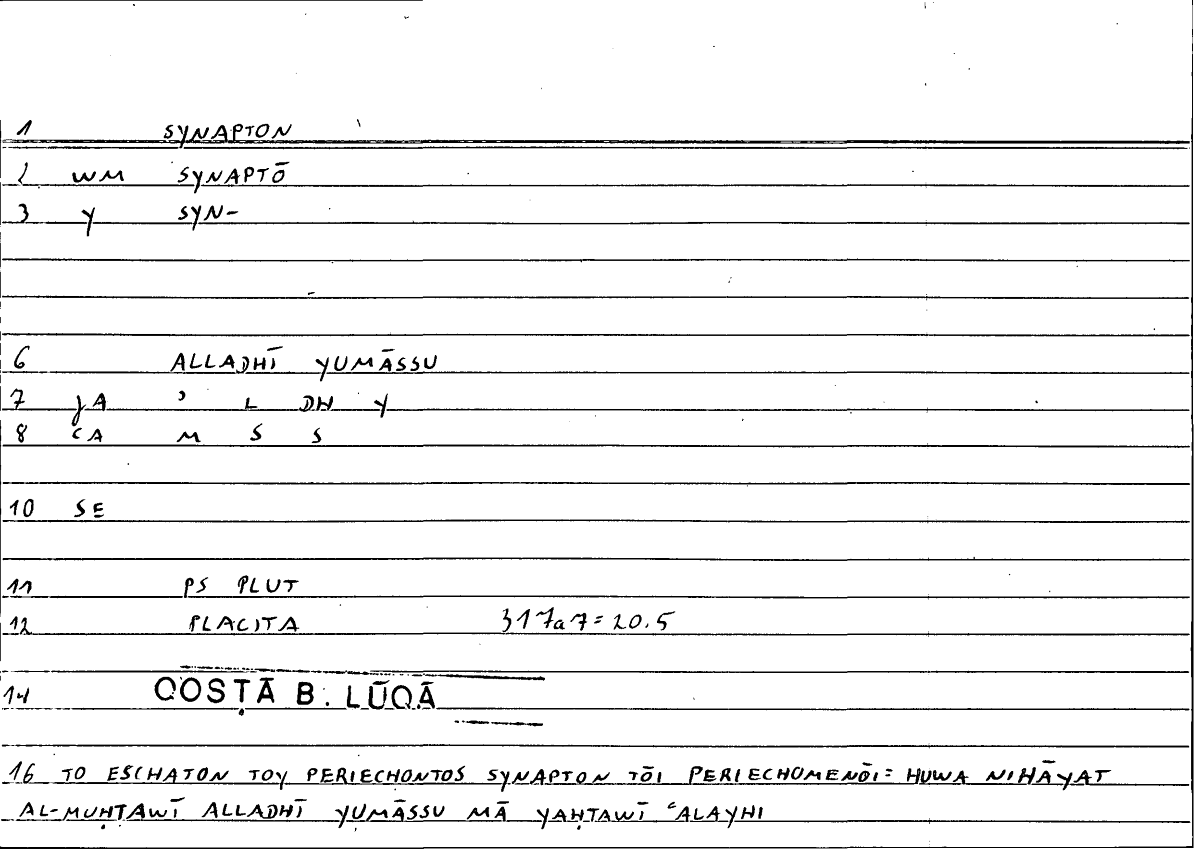 1 SYNAPTON
2 WM SYNAPTŌ
3 Y SYN-
6 ALLADHĪ YUMĀSSU
7 JA ʾ L DH Y
8 CA M S S
10 SE
11 PS PLUT
12 PLACITA 317a7=20.5
14 QOSṬĀ B. LŪQĀ
16 TO ESCHATON TOY PERIECHONTOS SYNAPTON TŌI PERIECHOMENŌI= HUWA NIHĀYAT
AL-MUḤTAWĪ ALLADHĪ YUMĀSSU MĀ YAḤTAWĪ ʿALAYHI